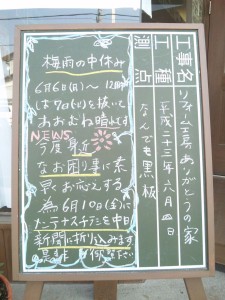 梅雨の中休み
6月6日(月)～12日
は7日(火)を抜いて
おおむね晴れです
NEWS
今度身近
なお困り事に素
早くお応えする
為6月10日(金)に
メンテナンスチラシを中日
新聞に折り込みます
ご覧下さい
工事名
リフォーム喜 ありがとうの家
工種
平成二十三年六月四日
測点
なんでも黒板